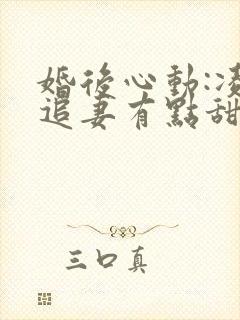 婚後心動:凌
追妻有點甜
三口真